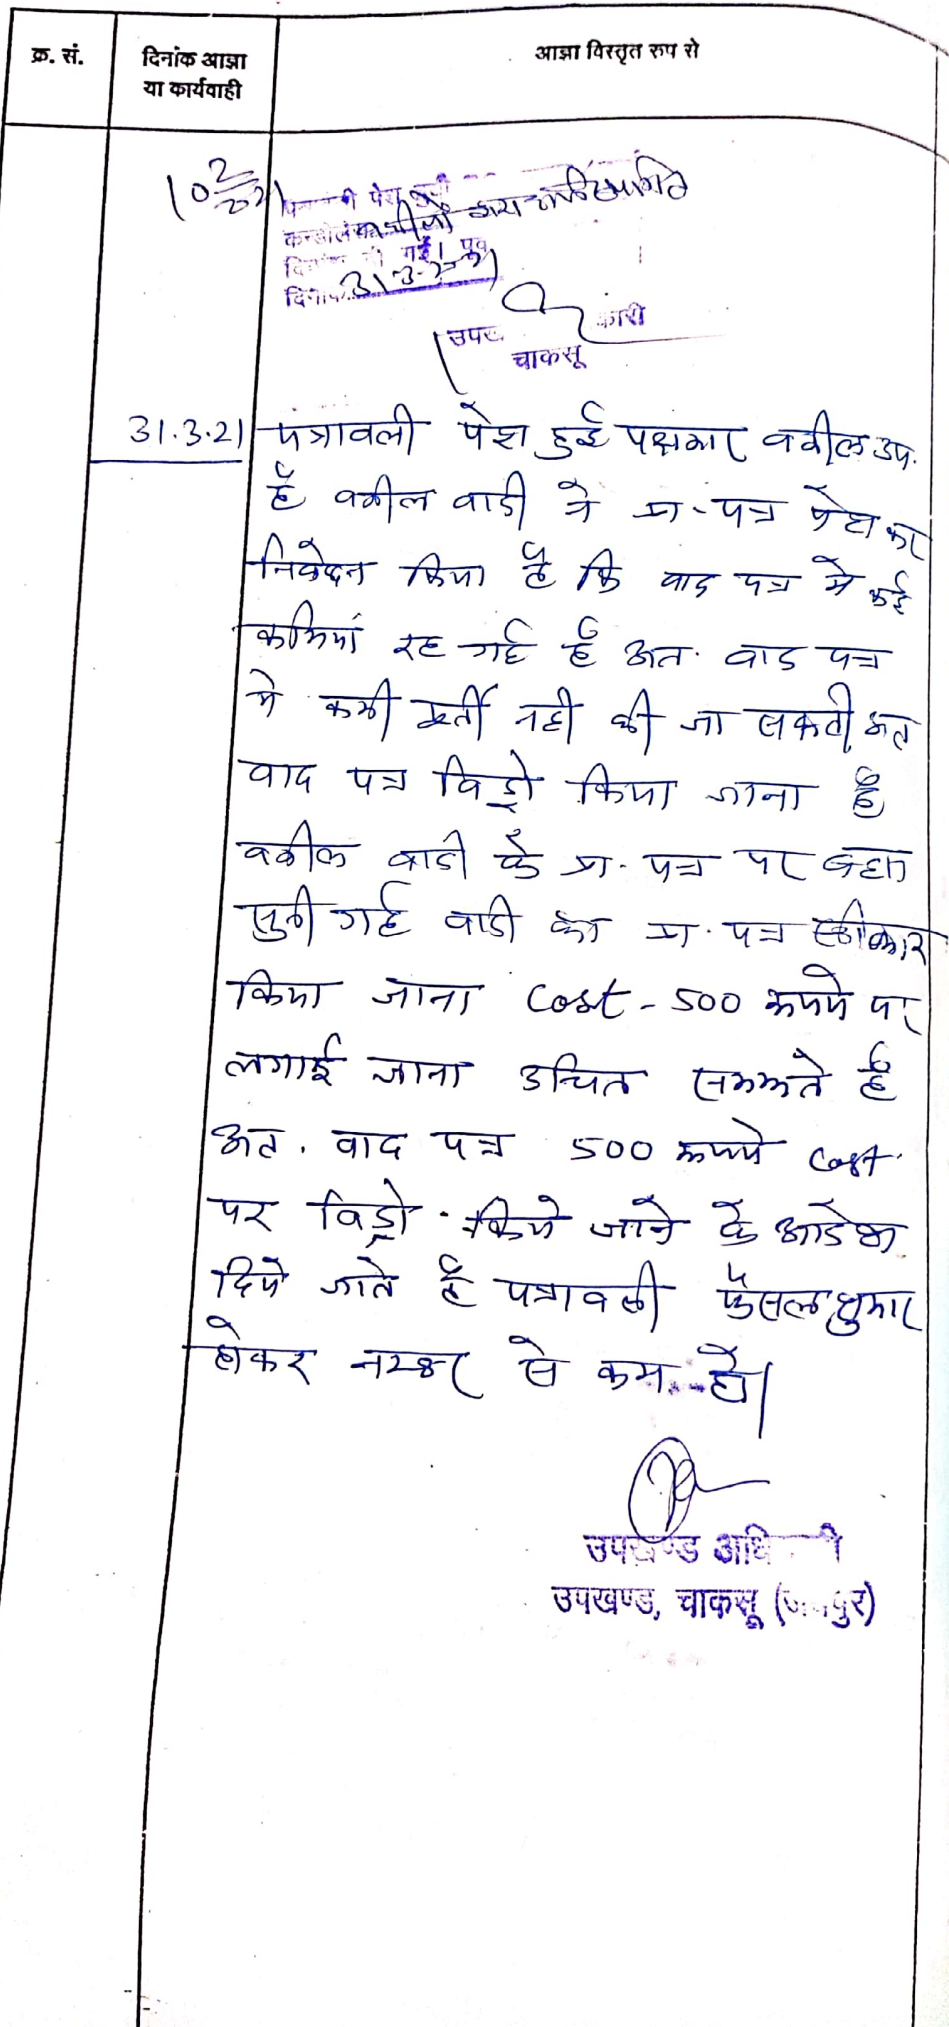 क्र. सं.
दिनांक आज्ञा
या कार्यवाही
आज्ञा विस्तृत रुप से
पेश हुई
गई।
दिनांक 31-3-21
उपख कारी
चाकसू
31.3.21 पत्रावली पेश हुई पक्षकार वकील उप.
है वकील वादी ने प्रा-पत्र पेश कर
निवेदन किया है कि वाद पत्र मे कई
कमियां रह गई है अत. वाद पत्र
मे कमी पूर्ती नही की जा सकती, अत
वाद पत्र विड्रो किया जाना है
वकील वादी के प्रा-पत्र पर बहस
सुनी गई वादी का प्रा. पत्र स्वीकार
किया जाना Cost - 500 रूपये पर
लगाई जाना उचित समझते है
अत. वाद पत्र 500 रूपये Cost.
पर विड्रो. किये जाने के आदेश
दिये जाते है पत्रावली फैसल शुमार
होकर नम्बर से कम हो।
उपखण्ड अधि
उपखण्ड, चाकसू (जयपुर)